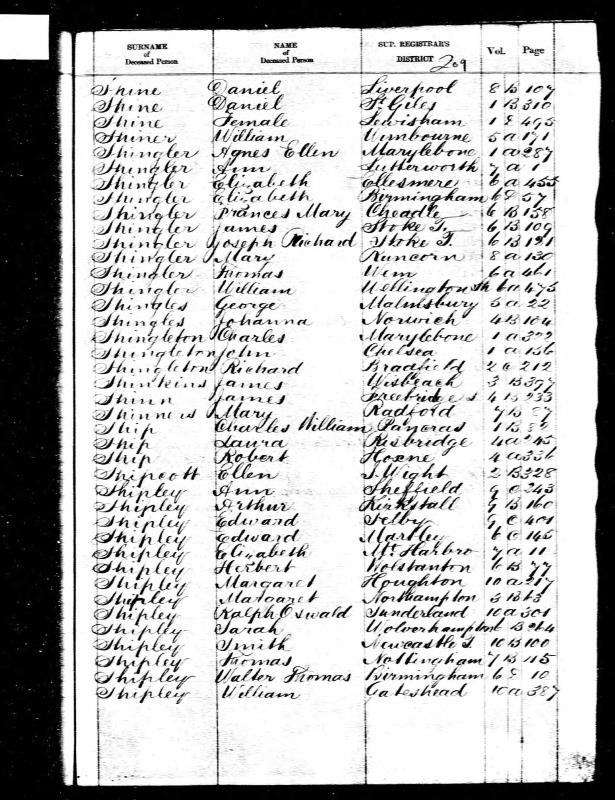 SURNAME of Deceased Person NAME of Deceased Person SUP. REGISTRAR'S DISTRICT Vol. Page
209
Shine Daniel Liverpool 8 B 107
Shine Daniel St Giles 1 B 310
Shine Female Lewisham 1 d 495
Shiner William Wimbourne 5 a 171
Shingler Agnes Ellen Marylebone 1 a 287
Shingler Ann Lutterworth 7 a 1
Shingler Elizabeth Ellesmere 6 a 455
Shingler Elizabeth Birmingham 6 d 57
Shingler Frances Mary Cheadle 6 B 158
Shingler James Stoke T. 6 B 109
Shingler Joseph Richard Stoke T. 6 B 121
Shingler Mary Runcorn 8 a 130
Shingler Thomas Wem 6 a 461
Shingler William Wellington Sh 6 a 475
Shingles George Malmsbury 5 a 22
Shingles Johanna Norwich 4 B 104
Shingleton Charles Marylebone 1 a
Shingleton John Chelsea 1 a 156
Shingleton Richard Bradfield 2 c 212
Shinkins James Wisbeach 3 B 397
Shinn James Freebridge 4 B 233
Shinners Mary Radford 7 B 87
Ship Charles William Pancras 1 B
Ship Laura Risbridge 4 a 245
Ship Robert Hoxne 4 a 336
Shipcott Ellen I. Wight 2 B 328
Shipley Ann Sheffield 9 c 243
Shipley Arthur Kirkstall 9 B 160
Shipley Edward Selby 9 c 401
Shipley Edward Martley 6 c 145
Shipley Elizabeth Mt Harbro 7 a 11
Shipley Herbert Wolstanton 6 B 77
Shipley Margaret Houghton 10 a 217
Shipley Margaret Northampton 3 B 63
Shipley Ralph Oswald Sunderland 10 a 301
Shipley Sarah Wolverhampton 6 B 264
Shipley Smith Newcastle T. 10 B 100
Shipley Thomas Nottingham 7 B 115
Shipley Walter Thomas Birmingham 6 d 10
Shipley William Gateshead 10 a 387